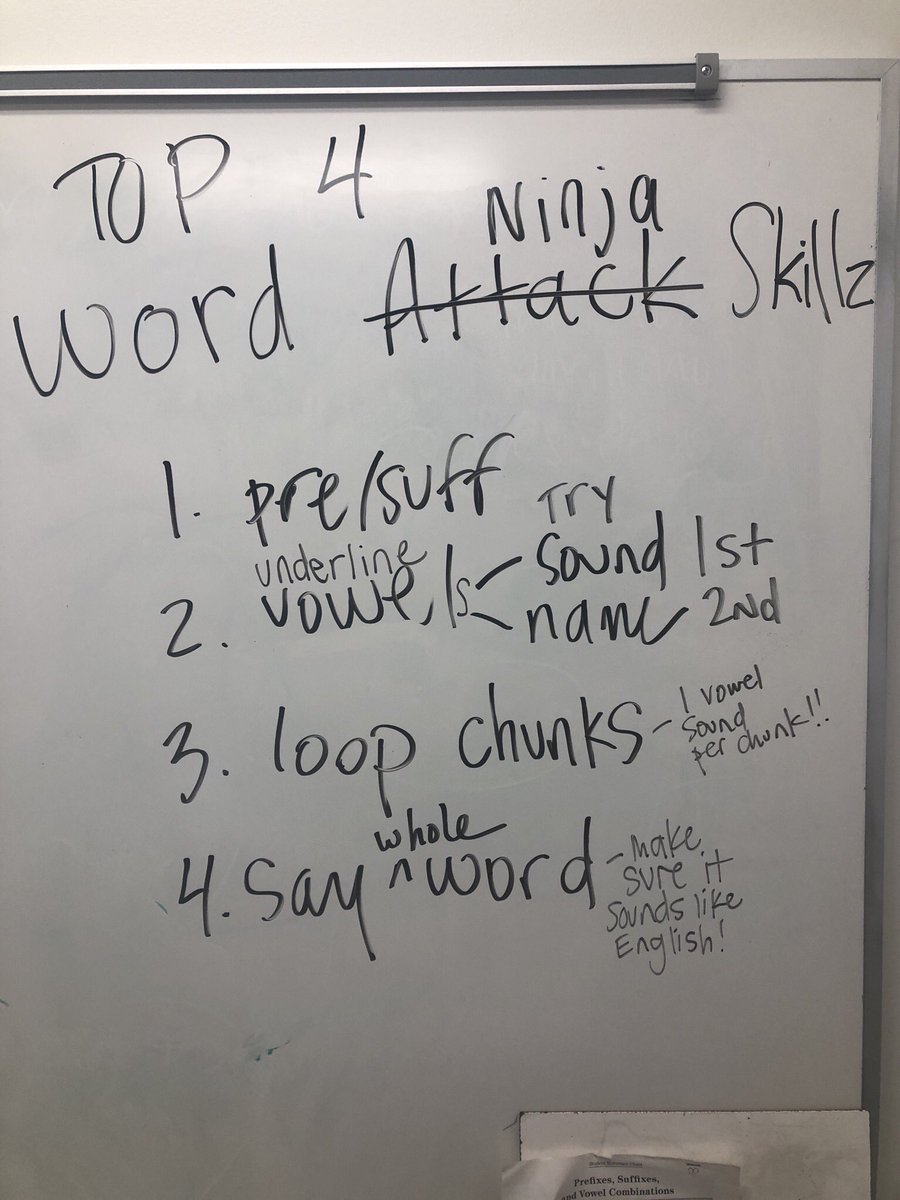 TOP 4
Ninja
Word Attack Skillz
1. pre/suff
Try
underline
2. vowels sound 1st
name 2nd
3. loop chunks - 1 vowel
sound
per chunk!!
whole
4. say ^ word - make
sure it
sounds like
English!
Prefixes, Suffixes,
and Vowel Combinations